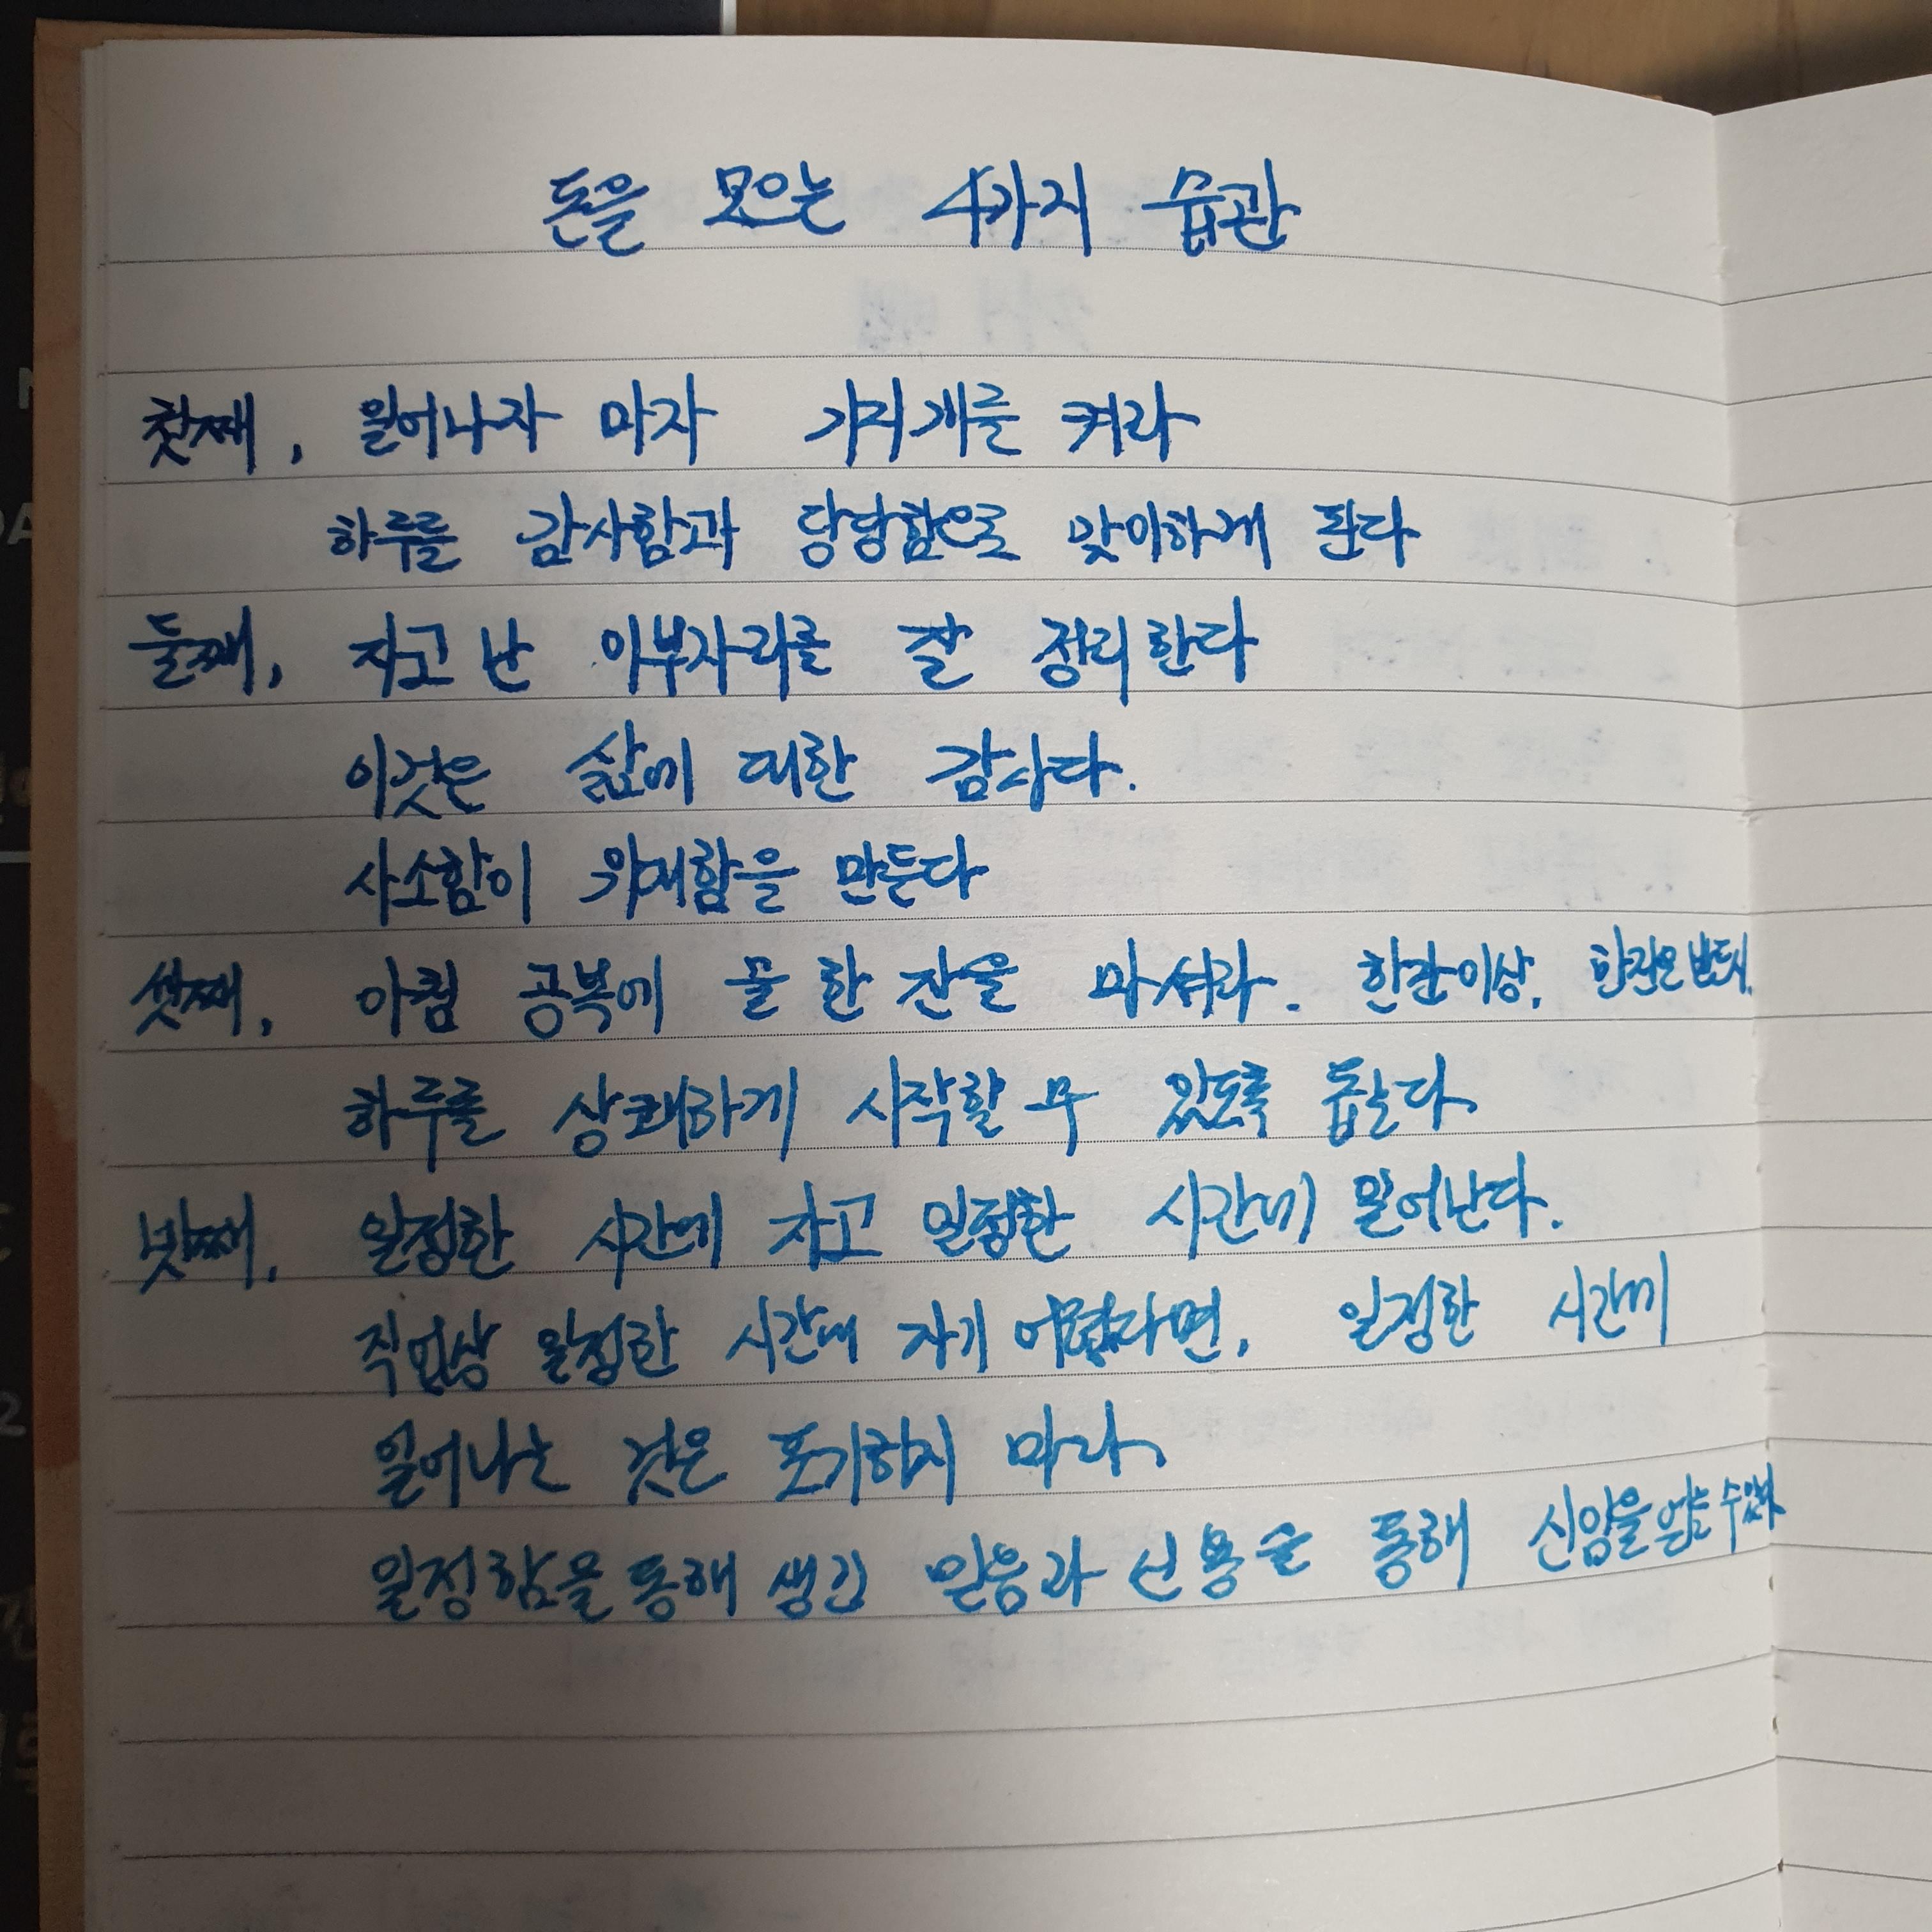 돈을 모으는 4가지 습관
첫째, 일어나자 마자 기지개를 켜라
하루를 감사함과 당당함으로 맞이하게 된다
둘째, 자고 난 이부자리를 잘 정리한다
이것은 삶에 대한 감사다.
사소함이 위대함을 만든다
셋째, 아침 공복에 물 한 잔을 마셔라. 한잔이상. 한잔은 반드시.
하루를 상쾌하게 시작할 수 있도록 돕는다.
넷째, 일정한 시간에 자고 일정한 시간에 일어난다.
직업상 일정한 시간에 자기 어렵다면, 일정한 시간에
일어나는 것은 포기하지 마라.
일정함을 통해 생긴 믿음과 신용을 통해 신임을 얻는